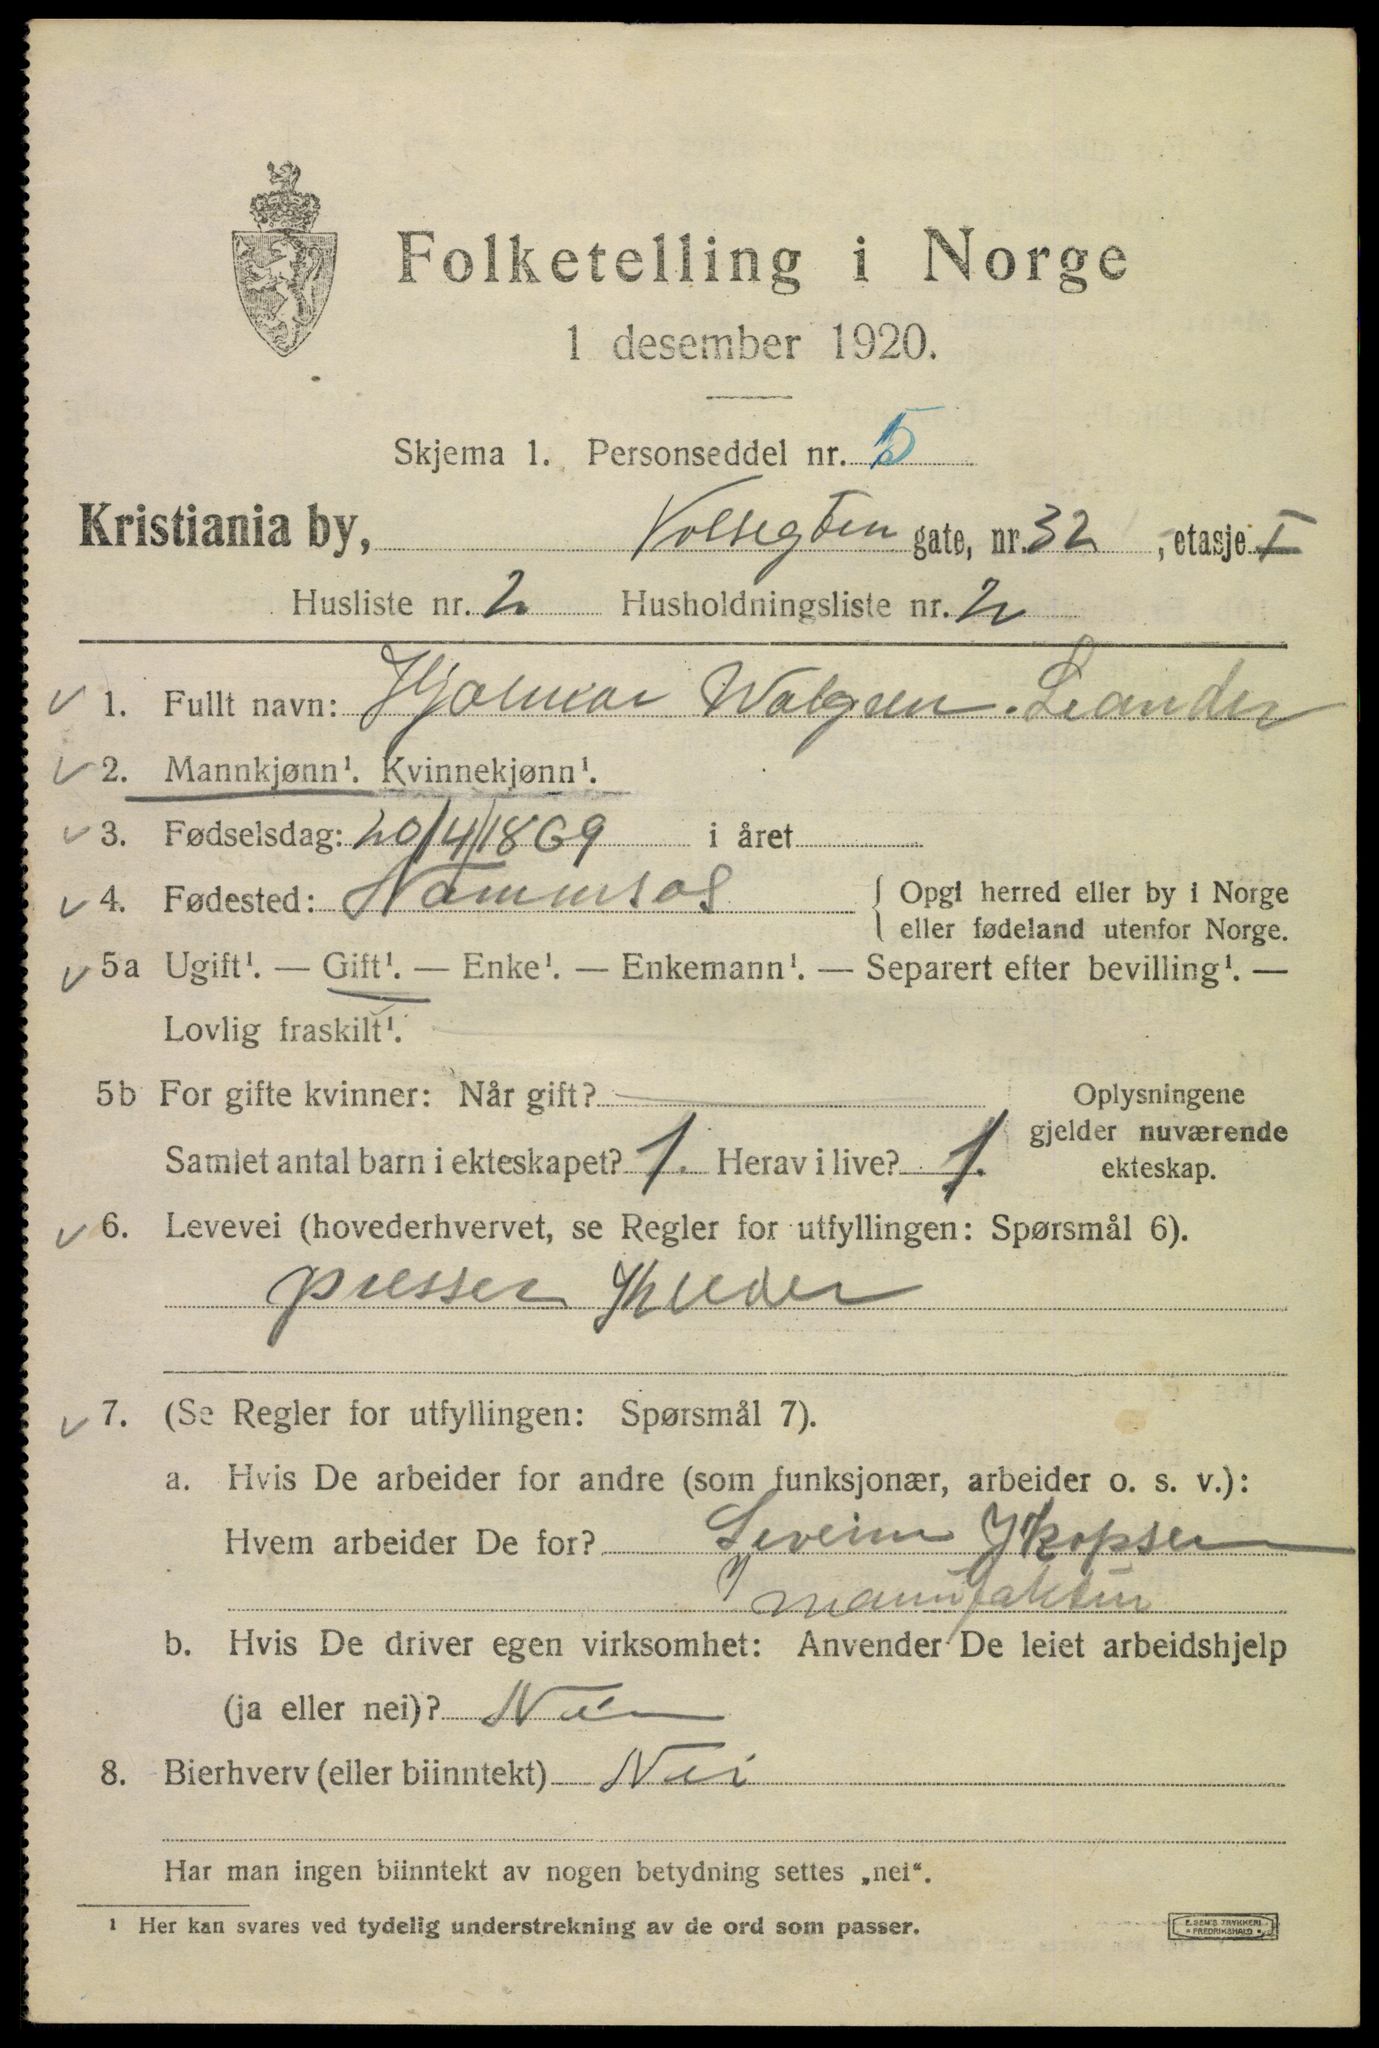 Folketelling i Norge
1 desember 1920.
Skjema 1. Personseddel nr. 5
Kristiania by, gate, nr. 32, etasje I
Husliste nr. 2 Husholdningsliste nr. 2
1. Fullt navn: Hjalmar Walgren Leander
2. Mannkjønn¹. Kvinnekjønn¹.
3. Fødselsdag: 20/4/1869 i året
4. Fødested: Nammsos { Opgi herred eller by i Norge
{ eller fødeland utenfor Norge.
5a Ugift¹. — Gift¹. — Enke¹. — Enkemann¹. — Separert efter bevilling¹. —
Lovlig fraskilt¹.
5b For gifte kvinner: Når gift? Oplysningene
gjelder nuværende
Samlet antal barn i ekteskapet? 1. Herav i live? 1. ekteskap.
6. Levevei (hovederhvervet, se Regler for utfyllingen: Spørsmål 6).
presser
7. (Se Regler for utfyllingen: Spørsmål 7).
a. Hvis De arbeider for andre (som funksjonær, arbeider o. s. v.):
Hvem arbeider De for?
manufaktur
b. Hvis De driver egen virksomhet: Anvender De leiet arbeidshjelp
(ja eller nei)? Nei
8. Bierhverv (eller biinntekt) Nei
Har man ingen biinntekt av nogen betydning settes „nei“.
¹ Her kan svares ved tydelig understrekning av de ord som passer.
E. SEM'S TRYKKERI
FREDRIKSHALD